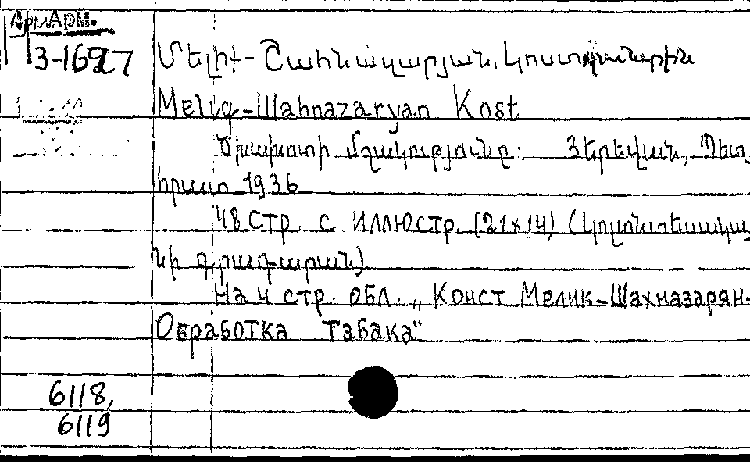 Арм. Арм.
3-1627
Մելիք-Շահնազարյան, Կոստանտին
Melig-Шahnazaryan Kost
Ծխախոտի մշակությունը. Յերեվան, Պետ
հրատ 1936
48 стр. с иллюстр. (21х14) (Կոլտնտեսակա
նի գրադարան)
На 4 стр. обл. „Конст Мелик-Шахназарян-
Обработка табака"
6118,
6119